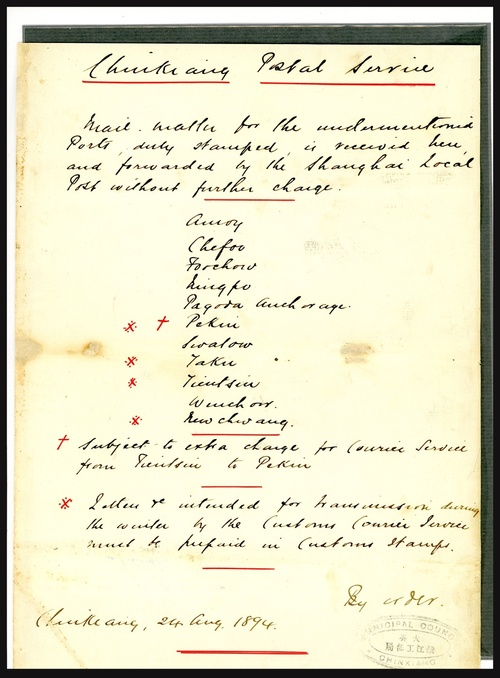 Chinkiang Postal Service
Mail matter for the undermentioned
Ports, duly stamped, is received here,
and forwarded by the Shanghai Local
Post without further charge.
Amoy
Chefoo
Foochow
Ningpo
Pagoda Anchorage.
※ † Pekin
Swatow
※ Taku
※ Tientsin
Wenchow.
※ Newchwang.
† Subject to extra charge for Courier Service
from Tientsin to Pekin
※ Letters &c intended for transmission during
the winter by the Customs Courier Service
must be prepaid in Customs Stamps.
By order.
Chinkiang, 24 Aug. 1894.
MUNICIPAL COUNCIL
CHINKIANG